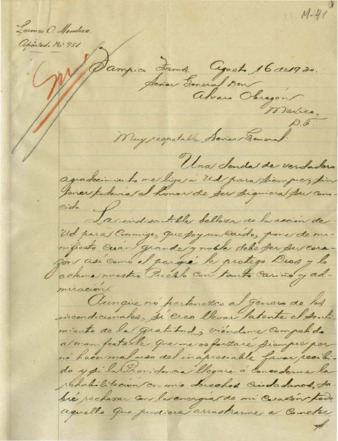 M-41
Lorenzo O. Mendoza
Apartado No. 951
Tampico Tamps. Agosto 16 de 1920.
Señor General Don
Alvaro Obregón
México,
D. F.
Muy respetable Señor General:
Una deuda de verdadero
agradecimiento me liga a Ud para siempre, sin
haber tenido el honor de ser siquiera su cono
cido.
La indiscutible belleza de la acción de
Ud para conmigo, que soy un caído, pone de ma
nifiesto cuan grande y noble debe ser su cora
zón así como el porqué le protege Dios y le
aclama nuestro Pueblo con tanto cariño y ad-
miración.
Aunque no pertenezco al género de los
incondicionales, si creo llevar latente el senti-
miento de la gratitud, y viéndome compelido
a manifestarle que me esforzaré siempre por
no hacer mal uso del inapreciable favor recibi-
do y si la Providencia llegare a concederme la
rehabilitación en mis derechos ciudadanos, sa-
bré rechazar con la energía de mi corazón todo
aquello que pudiera arrastrarme a cometer